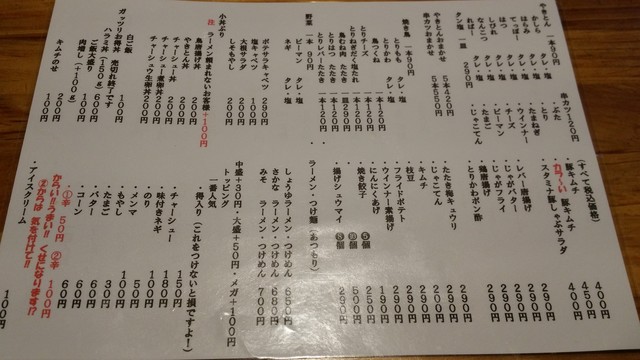 やきとん 一本90円
かしら タレ・塩
はらみ タレ・塩
てっぽー タレ・塩
はつ タレ・塩
しびれ タレ・塩
なんこつ タレ・塩
ればー タレ・塩
タン塩 一皿 290円
やきとんおまかせ 5本420円
串カツおまかせ 5本550円
焼き鳥 一本90円
とりもも タレ・塩
とりかわ タレ・塩
鳥つくね タレ・塩
とりチーズ 一本120円
とりねぎだく塩たれ 一本120円
鳥むね肉 タレ・塩
鳥もも たたき 一皿290円
とりはつ たたき 一本120円
とりレバー たたき 一本120円
野菜 一本90円
ピーマン タレ・塩
ネギ タレ・塩
ポテサラキャベツ 290円
塩キャベツ 100円
大根サラダ 200円
しそもやし 200円
小丼ぶり
注 ラーメン頼まれないお客様+100円
鳥唐揚げ丼 200円
やきとん丼 200円
チャーシュー丼 200円
チャーシュー煮卵丼 200円
チャーシュー生卵丼 200円
白ご飯 100円
ガッツリお得丼 売切れ終了です
ハラミ丼(150g) 600円
ご飯大盛り +100円
肉増し(100g) 200円
キムチのせ 100円
串カツ120円
・ぶた
・とり
・たまねぎ
・ウインナー
・チーズ
・ピーマン
・たまご
・じゃこてん
(すべて税込価格)
・豚キムチ 400円
・カラ~い 豚キムチ 450円
・スタミナ豚しゃぶサラダ 400円
・レバー唐揚げ 290円
・じゃがバター 290円
・じゃがフライ 290円
・鶏唐揚げ 290円
・とりかわポン酢 290円
・たたき梅キュウリ 290円
・じゃこてん 290円
・キムチ 290円
・枝豆 290円
・フライドポテト 290円
・ウインナー素揚げ 290円
・にんにくあげ 190円
・焼き餃子 ⑤個 250円
⑩個 500円
・揚げシュウマイ ⑧個 290円
ラーメン・つけ麺(あつもり)
しょうゆラーメン・つけめん 650円
さかな ラーメン・つけめん 680円
みそ ラーメン・つけめん 700円
中盛+30円・大盛+50円・メガ+100円
トッピング
一番人気 ・得入り(これをつけないと損ですよ!)
・チャーシュー 150円
・味付きネギ 180円
・のり 100円
・メンマ 100円
・もやし 50円
・たまご 30円
・バター 60円
・コーン 60円
・①辛 50円 ②辛 100円
からい!!うまい!! くせになります!?
②からは 気を付けて!!
・アイスクリーム 100円